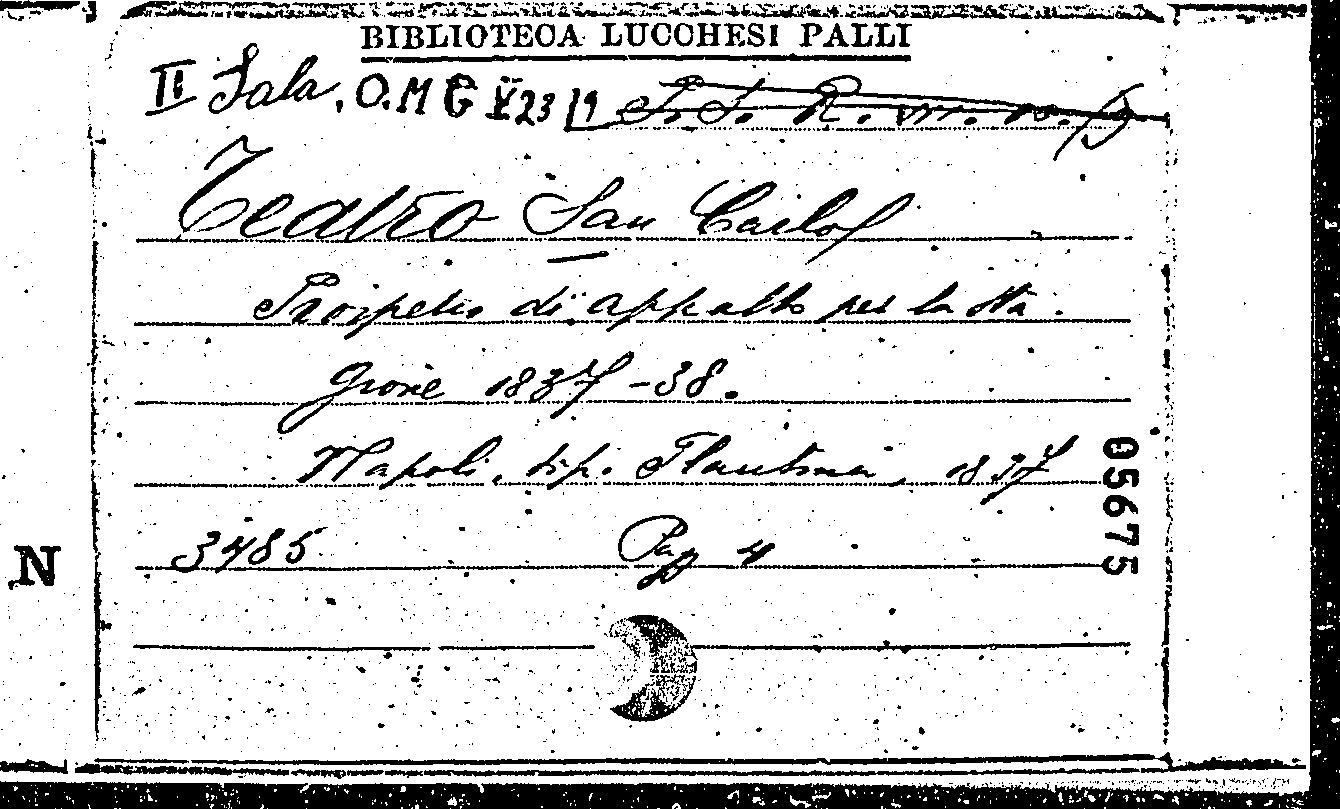 BIBLIOTECA LUCCHESI PALLI
II Sala, O.M G X 23 /9
Teatro San Carlo
Prospetto di appalto per la sta.
gione 1837-38.
Napoli, tip. Flautina, 1837
05675
3485 Pag 4
N